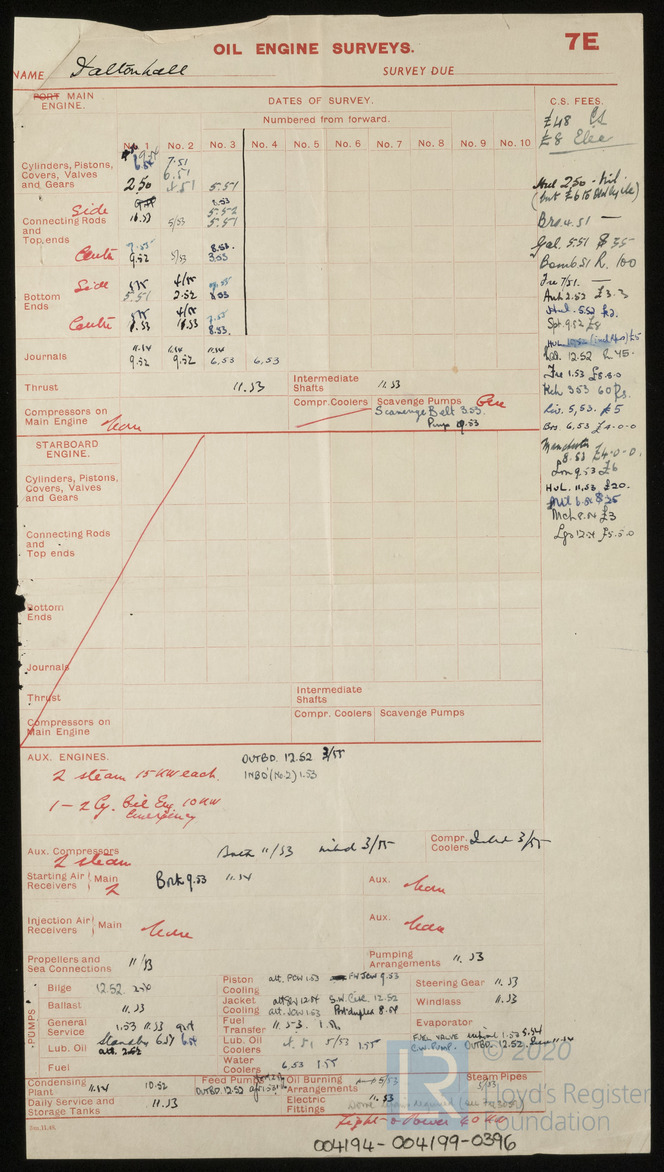 OIL ENGINE SURVEYS.
7E
NAME Daltonhall
SURVEY DUE
PORT MAIN ENGINE.
DATES OF SURVEY.
C.S. FEES.
Numbered from forward.
£48 CS
£8 Elec
No. 1 No. 2 No. 3 No. 4 No. 5 No. 6 No. 7 No. 8 No. 9 No. 10
Cylinders, Pistons, Covers, Valves and Gears
7.51
6.51
2.50 4.51 5.51
Hul 2.50 - Nil
Side
5.52
Connecting Rods and Top ends
10.53 5/53 5.51
Bro 4.51 —
Gal. 5.51 $ 35
Centre
9.52 5/53 3.53
8.53.
Bomb 51 R. 100
Fre 7/51. —
Side
4/55
Bottom Ends
5.51 2.52 8.53
Ant 2.52 £3.3
Hul. 5.52 £2.
Centre
4/55
8.53 10.53 8.53.
Spt 9.52 £8
Journals
11.54 11.54 11.54
9.52 9.52 6.53 6.53
12.52 R 45.
Fre 1.53 £8.8.0
Thrust 11.53
Intermediate Shafts 11.53
Kch 3.53 60 Rs.
Compressors on Main Engine None
Compr. Coolers
Scavenge Pumps One
Scavenge Belt 3.53.
Pump 9.53
Liv. 5,53. £5
Bos. 6,53 £4-0-0
STARBOARD ENGINE.
Manchester
8.53 £4-0-0.
Lon 9.53 £6
Hul. 11.53 £20.
Cylinders, Pistons, Covers, Valves and Gears
Mch 8.54 £3
Lgo 12.54 £5.5.0
Connecting Rods and Top ends
Bottom Ends
Journals
Thrust
Intermediate Shafts
Compressors on Main Engine
Compr. Coolers
Scavenge Pumps
AUX. ENGINES.
OUTBD. 12.52 3/55
INBD (No.2) 1.53
2 steam 15 KW each.
1 - 2 Cy. Oil Eng 10 KW
Emergency
Aux. Compressors
2 steam
11/53
3/55
Compr. Coolers
3/55
Starting Air Receivers Main 2
9.53 11.54
Aux. None
Injection Air Receivers Main None
Aux. None
Propellers and Sea Connections 11/53
Pumping Arrangements 11.53
PUMPS
Bilge 12.52
Piston Cooling
9.53
Steering Gear 11.53
Ballast 11.53
Jacket Cooling
S.W. Circ. 12.52
Port duplex 8.54
Windlass 11.53
General Service 1.53 11.53
Fuel Transfer 11.53.
Evaporator
Standby 6.51
Lub. Oil
Lub. Oil Coolers 4.51 5/53 1.55
FUEL VALVE 1.53 5.54
C.W. PUMP. OUTBD. 12.52.
Fuel
Water Coolers 6.53 1.55
Condensing Plant 11.54 10.52
Feed Pumps
OUTBD. 12.52
Oil Burning Arrangements 5/53
Steam Pipes 5/53
Daily Service and Storage Tanks 11.53
Electric Fittings 11.53
Light & Power 40 KW
Sen. 11.48.
004194-004199-0396
© 2020
LR
Lloyd's Register
Foundation